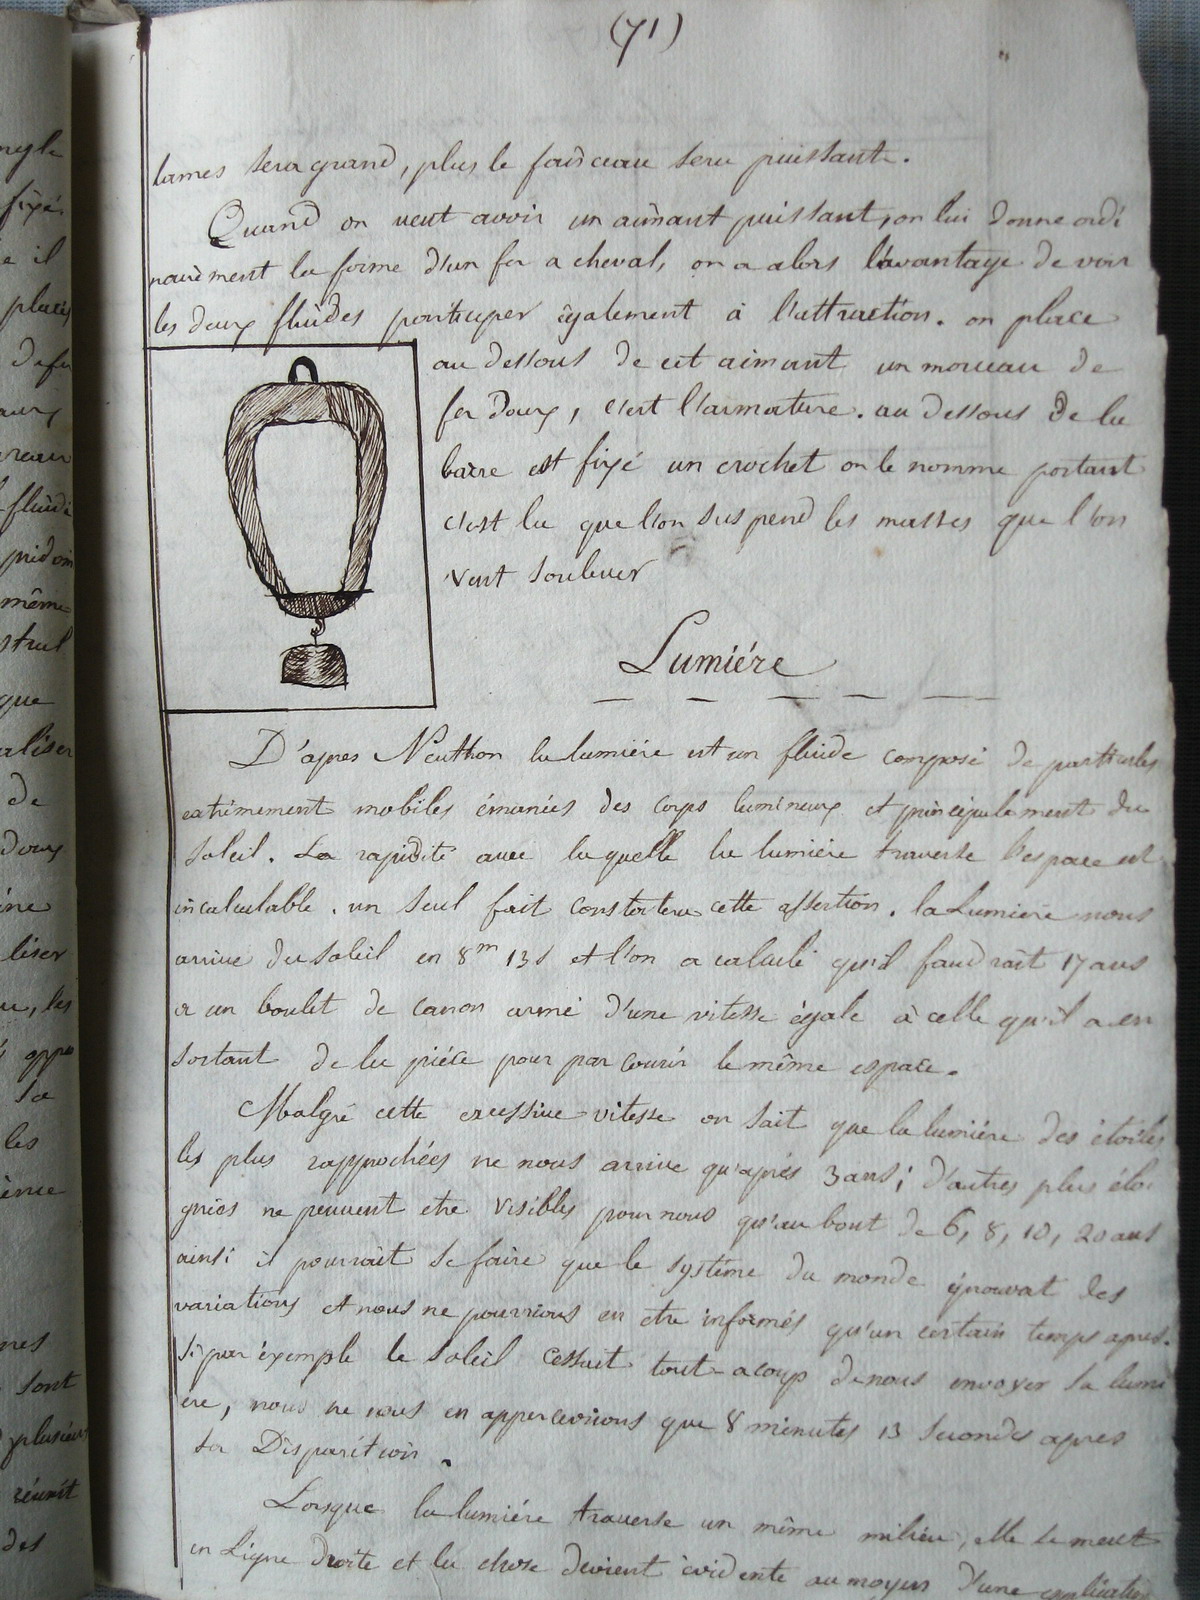 (71)
lames sera grand, plus le faisceau sera puissant.
Quand on veut avoir un aimant puissant, on lui donne ordi
nairement la forme d'un fer a cheval, on a alors l'avantage de voir
les deux fluides participer également à l'attraction. on place
au dessous de cet aimant un morceau de
fer doux, c'est l'armature. au dessous de la
barre est fixé un crochet on le nomme portant
c'est la que l'on suspend les masses que l'on
veut soulever
Lumiére
D'apres Neuthon la lumiére est un fluide composé de particules
extrimement mobiles émanées des corps lumineux et principalement du
soleil. La rapidité avec laquelle la lumiére traverse l'espace est
incalculable. un seul fait constatera cette assertion. la Lumiére nous
arrive du soleil en 8m 13s et l'on a calculé qu'il faudrait 17 ans
a un boulet de canon armé d'une vitesse égale à celle qu'il a en
sortant de la piéce pour parcourir le même espace.
Malgré cette excessive vitesse on sait que la lumiére des étoiles
les plus rapprochées ne nous arrive qu'aprés 3 ans; d'autres plus éloi
gnées ne peuvent etre visibles pour nous qu'au bout de 6, 8, 10, 20 ans
ainsi il pourrait se faire que le systéme du monde éprouvat des
variations et nous ne pourrions en etre informés qu'un certain temps apres.
Si par éxemple le soleil cessait tout-acoup de nous envoyer sa lumi
ere, nous ne nous en appercevrions que 8 minutes 13 secondes apres
sa Disparition.
Lorsque la lumiére traverse un même milieu, elle se meut
en Ligne droite et la chose devient évidente au moyen d'une
nyle
fixé
e il
placés
de fer
fluide
même
que
de
doux
liser
les
sa
les
sont
plusieurs
réunit
des